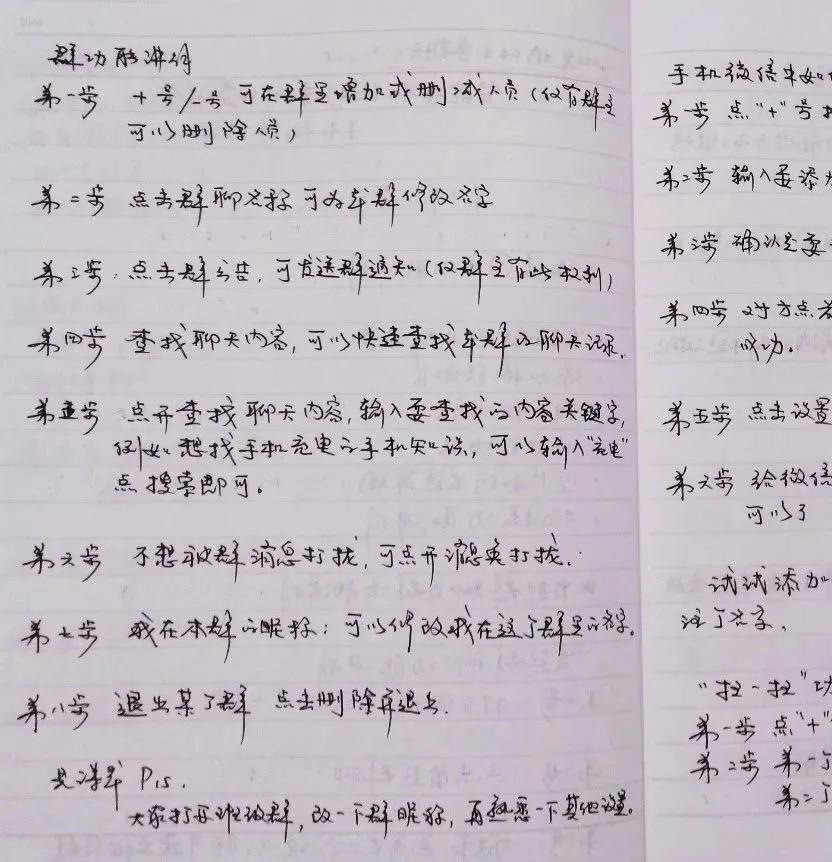 群功能讲解
第一步 +号/-号 可在群里增加或删减人员(仅有群主
可以删除人员)
第二步 点击群聊名称 可为本群修改名字
第三步:点击群公告,可发送群通知(仅群主有此权利)
第四步 查找聊天内容,可以快速查找本群的聊天记录.
第五步 点开查找聊天内容,输入要查找的内容关键字,
例如想找手机充电的手机知识,可以输入"充电"
点搜索即可。
第六步 不想被群消息打扰,可点开消息免打扰.
第七步 我在本群的昵称:可以修改我在这个群里的名字.
第八步 退出某个群 点击删除并退出.
见课堂 P15.
大家打开班级群,改一下群昵称,再熟悉一下其他设置。
手机微信中如何
第一步 点"+"号
第二步 输入要添加
第三步 确认是要
第四步 对方点
成功。
第五步 点击设置
第六步 给微信
可以了
试试添加
注了名字.
"扫一扫"功
第一步 点"+"
第二步 第一个
第二个